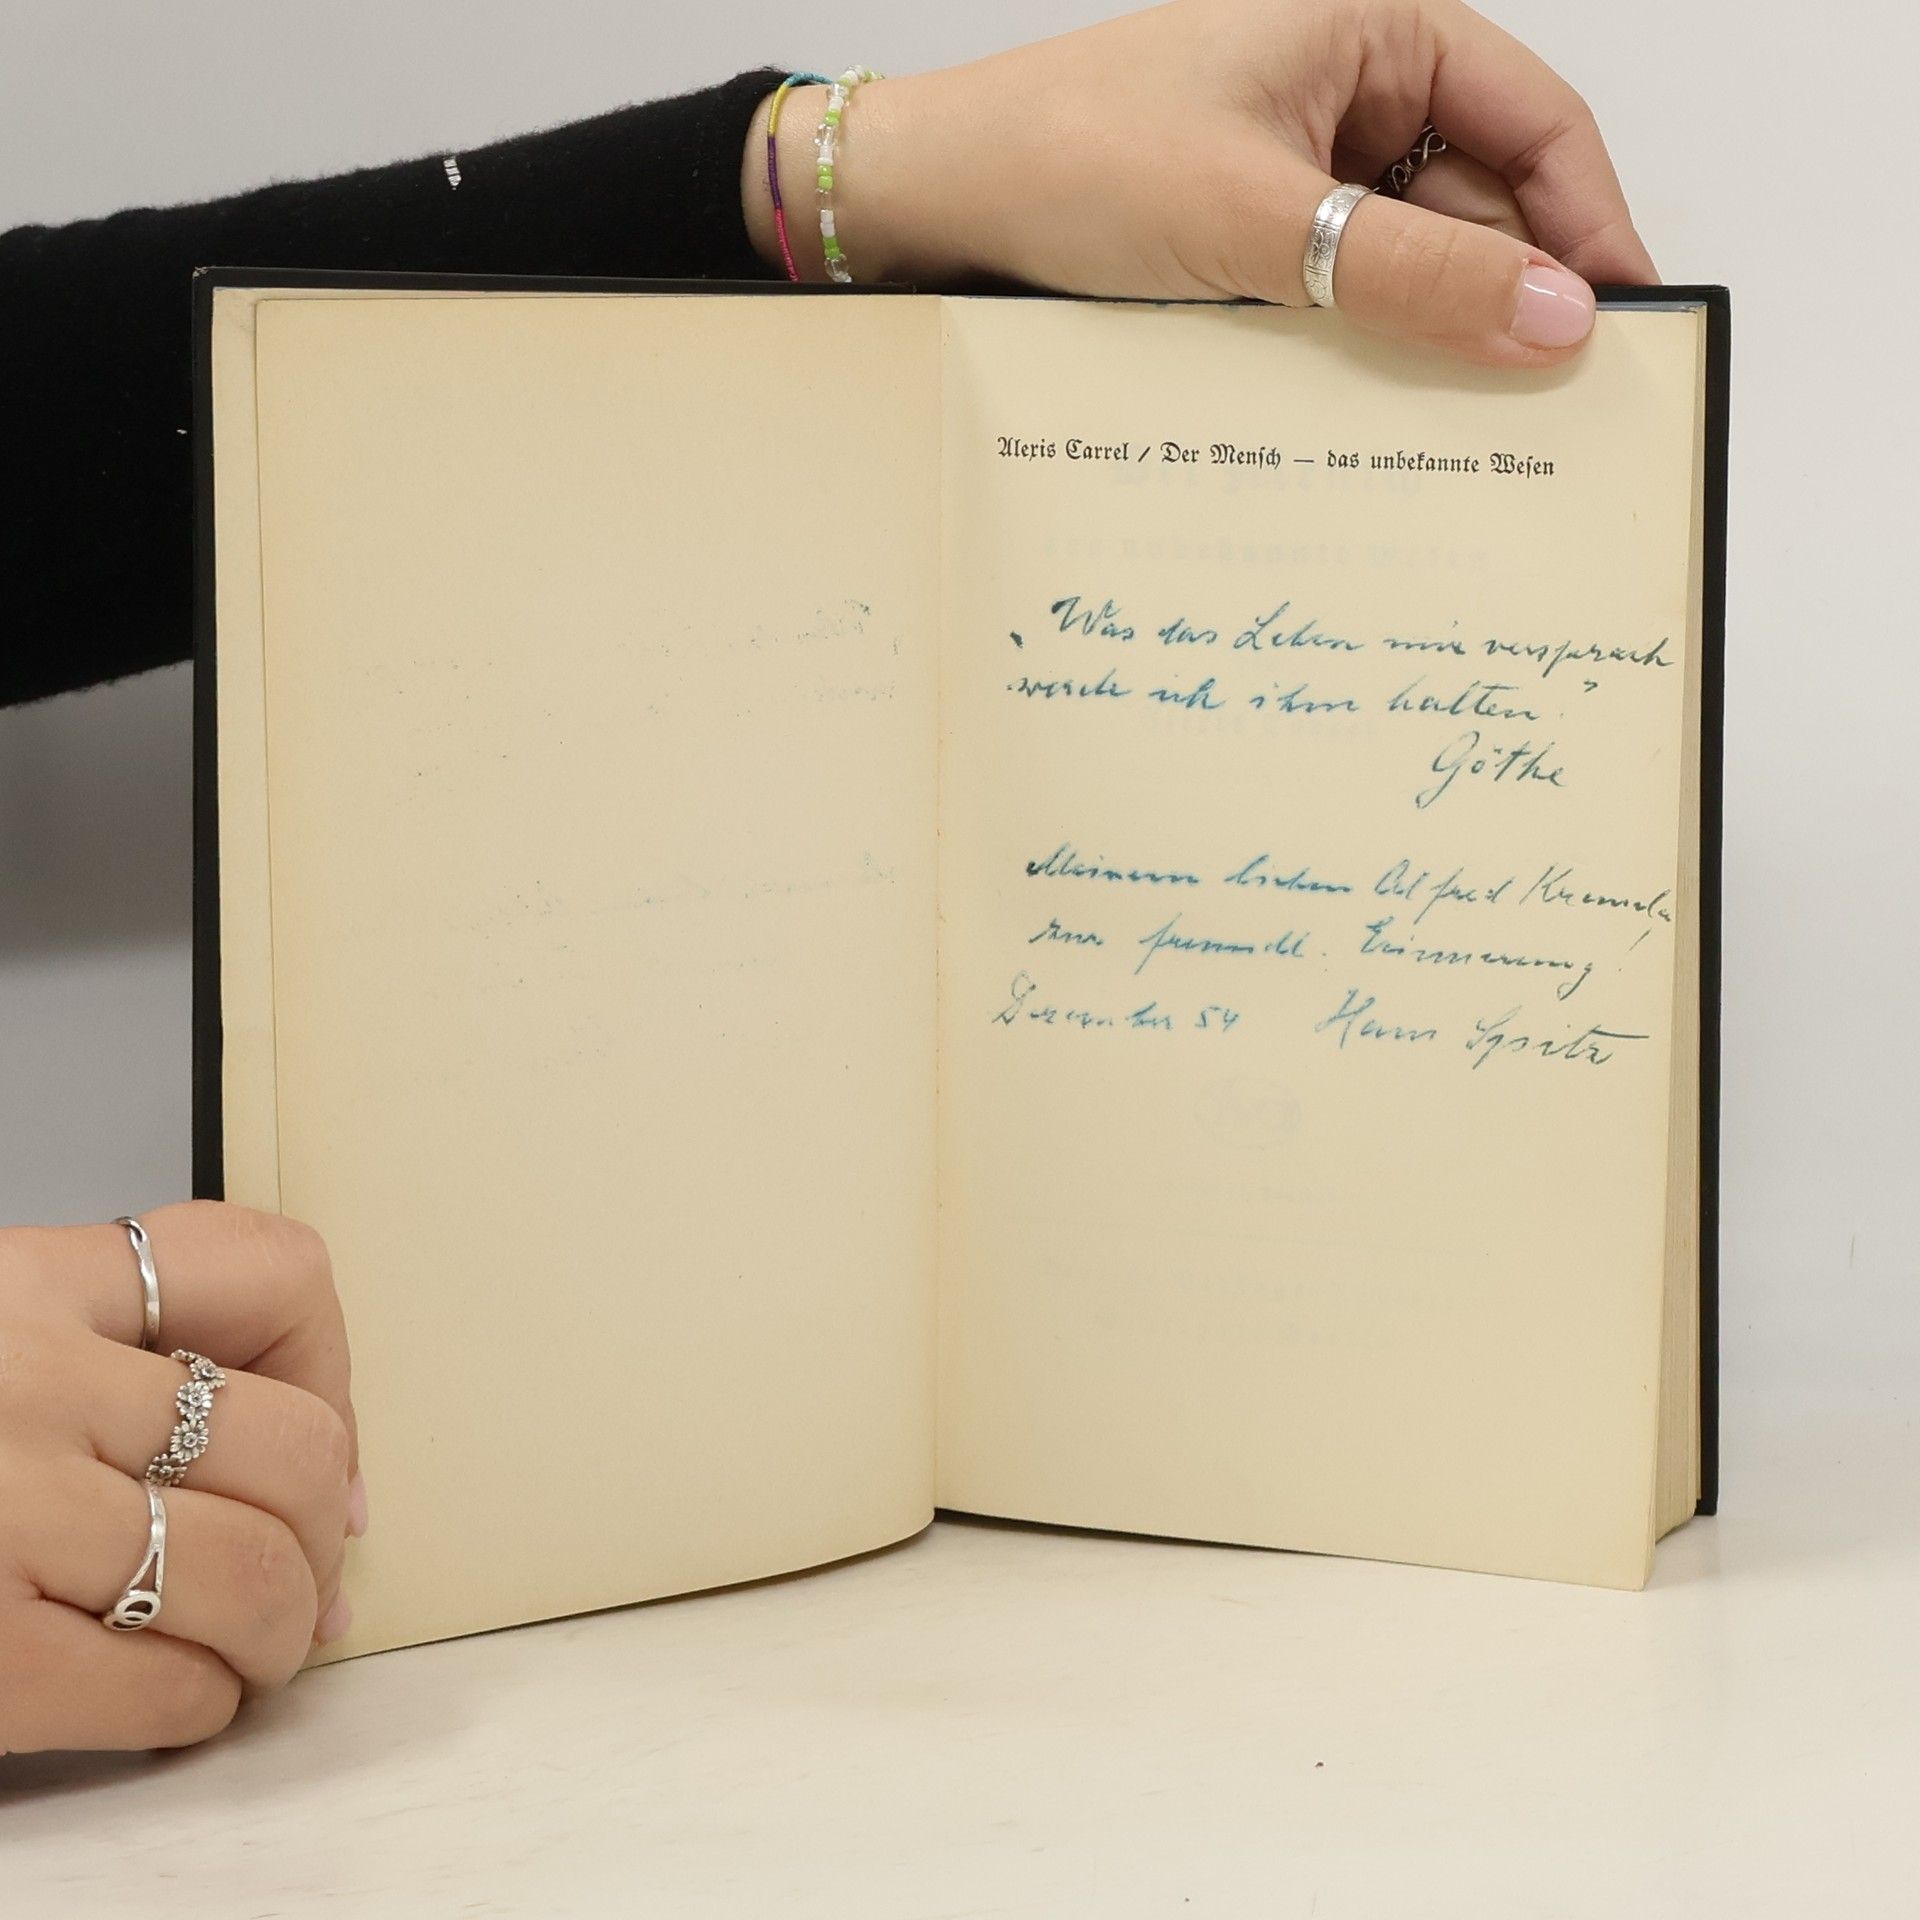 Alexis Carrel / Der Mensch — das unbekannte Wesen
„Was das Leben mir versprach
werde ich ihm halten."
Göthe
Meinem lieben Alfred
zur freundl. Erinnerung!
Dezember 54 Hans Spitz